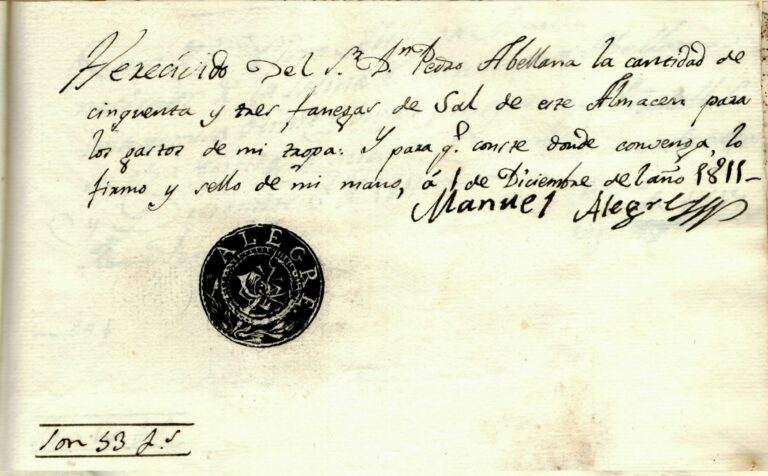 He recivido Del S.r D.n Pedro Abellana la cantidad de
cinquenta y tres fanegas de Sal de este Almacen para
los gastos de mi tropa: Y para q.e conste donde convenga, lo
firmo y sello de mi mano, á 1 de Diciembre del año 1811-
Manuel Alegre
ALEGRE
Son 53 f.s